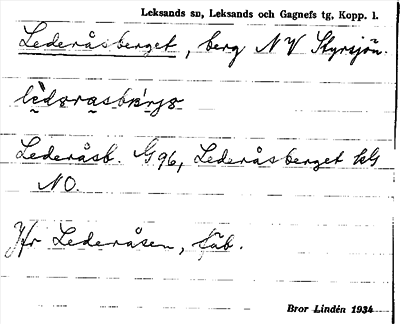 Leksands sn, Leksands och Gagnefs tg, Kopp. l.
Lederåsberget, berg NV Styrsjön.
Lederåsb. G96, Lederåsberget kG
NO.
Jfr Lederåsen, fäb.
Bror Lindén 1934